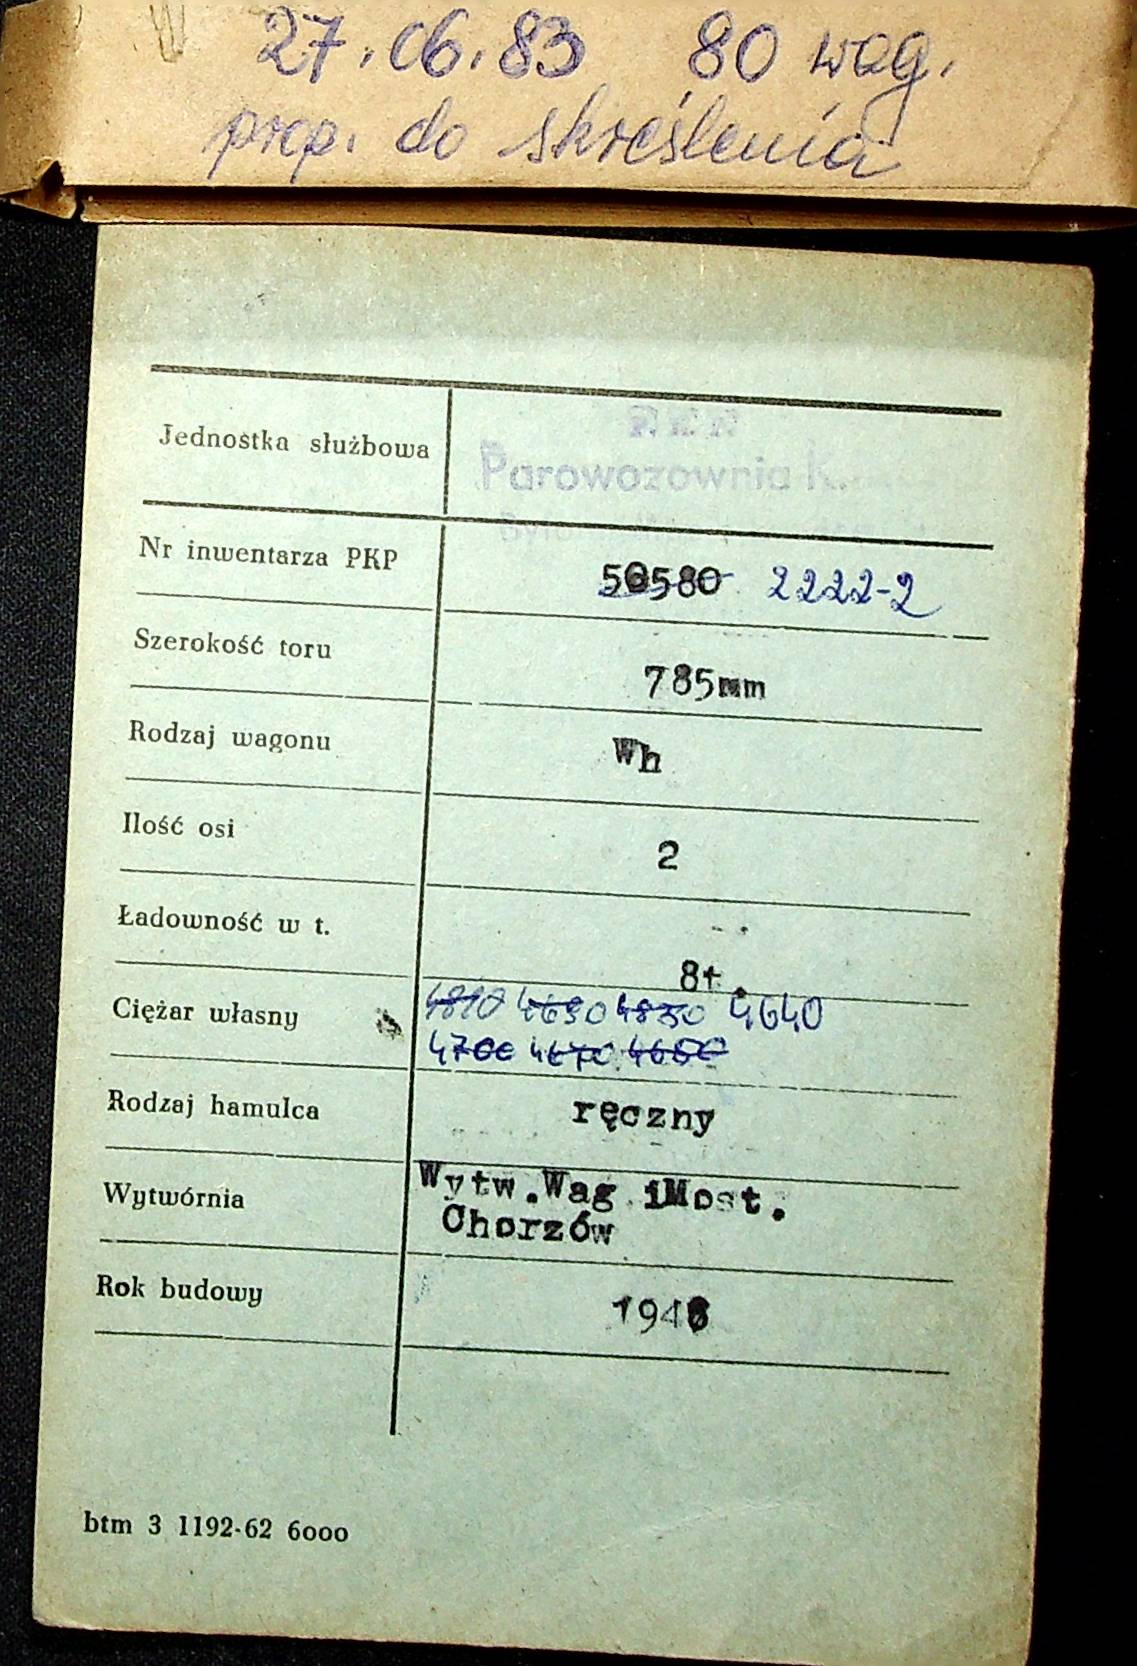 27.06.83 80 wag.
prop. do skreślenia
Jednostka służbowa
Parowozownia
Nr inwentarza PKP 50580 2222-2
Szerokość toru 785mm
Rodzaj wagonu Wh
Ilość osi 2
Ładowność w t. 8t.
Ciężar własny 4810 4690 4830 4640
4700 4670 4680
Rodzaj hamulca ręczny
Wytwórnia Wytw.Wag iMost.
Chorzów
Rok budowy
btm 3 1192-62 6000